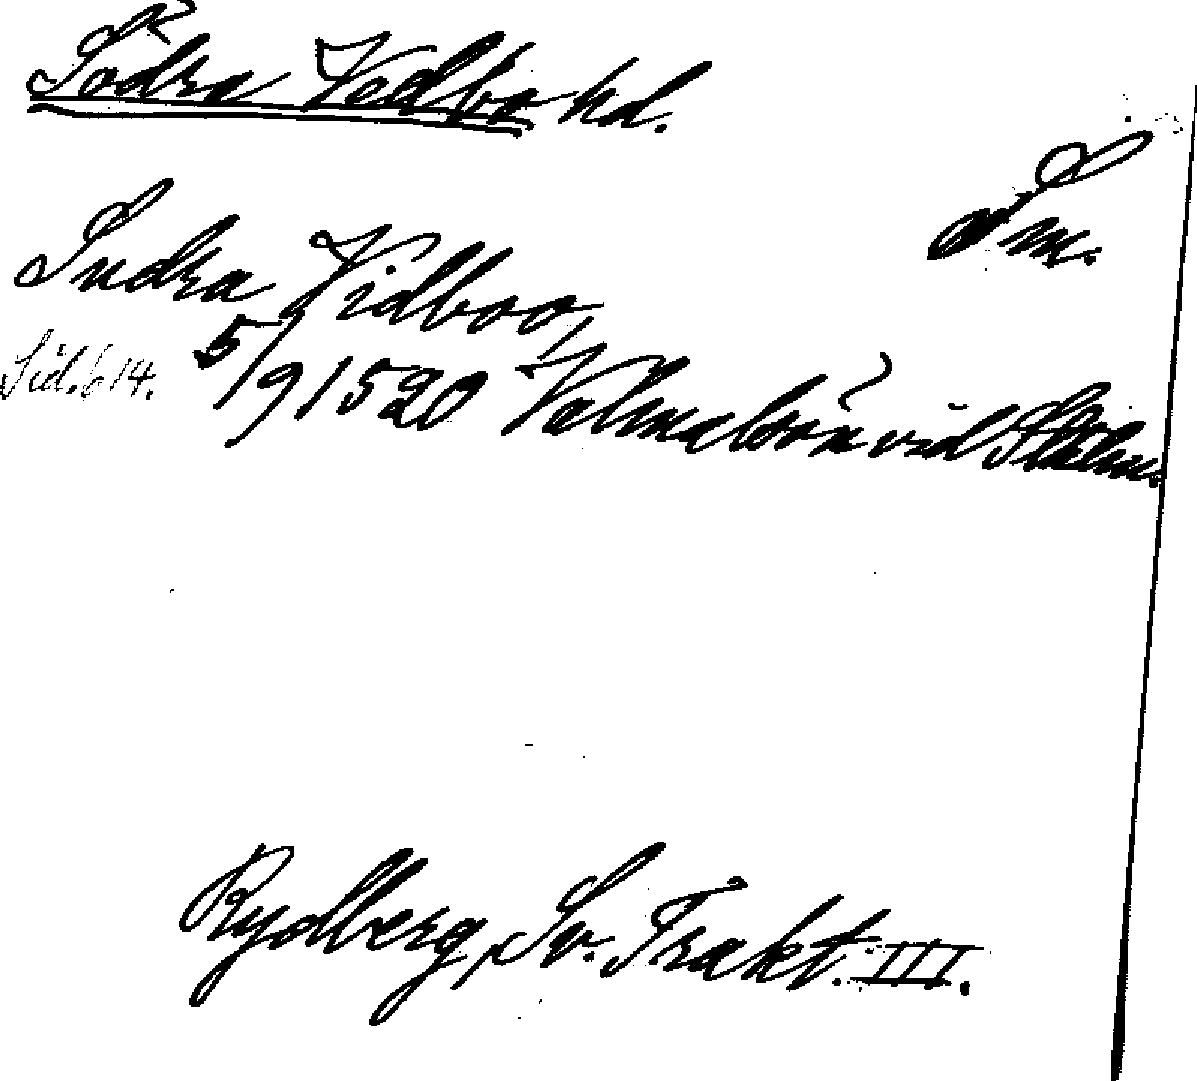 Södra Vedbo hd.
Sm.
Sudra Vidboo,
Sid. 614. 5/9 1520 Valmalsön vid Sthlm.
Rydberg, Sv. Trakt. III.